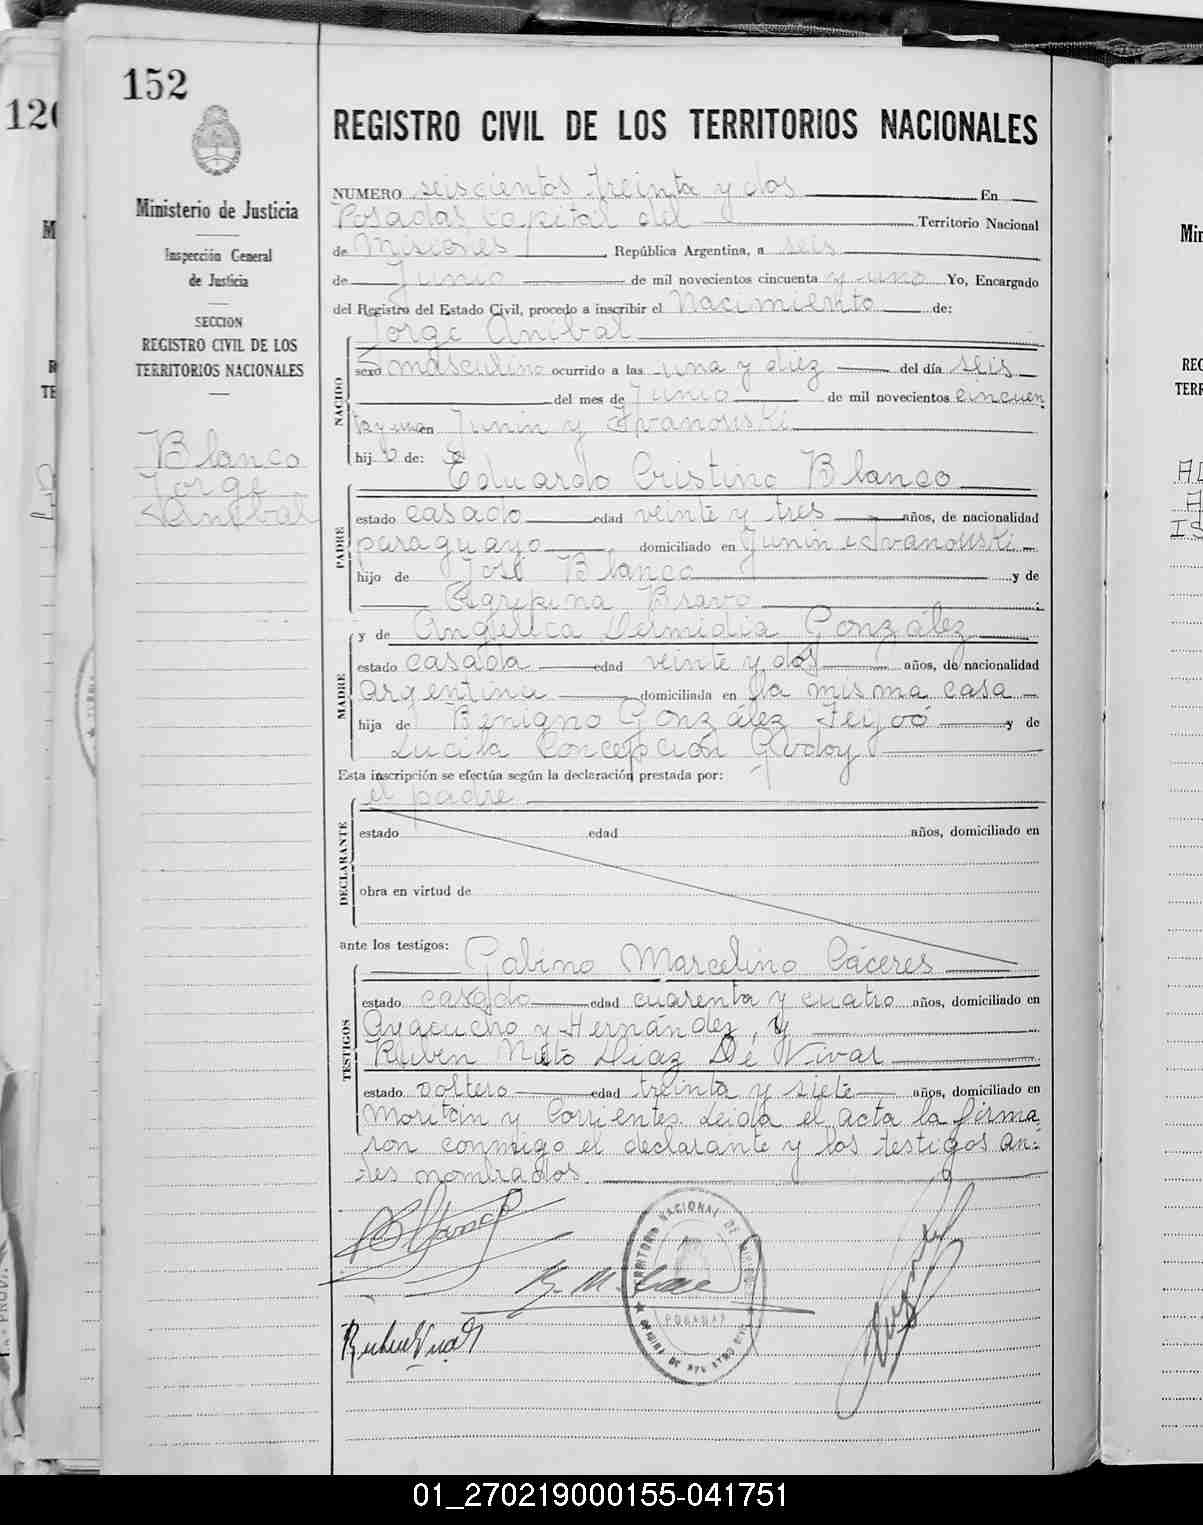 152
Ministerio de Justicia
Inspección General
de Justicia
SECCION
REGISTRO CIVIL DE LOS
TERRITORIOS NACIONALES
Blanco
Jorge
Anibal
REGISTRO CIVIL DE LOS TERRITORIOS NACIONALES
NUMERO seiscientos treinta y dos En
Posadas capital del Territorio Nacional
de Misiones, República Argentina, a seis
de Junio de mil novecientos cincuenta y uno Yo, Encargado
del Registro del Estado Civil, procedo a inscribir el Nacimiento de:
Jorge Anibal
NACIDO
sexo masculino ocurrido a las una y diez del día seis
del mes de Junio de mil novecientos cincuen
ta y uno en Junin y Ivanouski
hijo de:
PADRE
Eduardo Cristino Blanco
estado casado edad veinte y tres años, de nacionalidad
paraguayo domiciliado en Junin e Ivanouski
hijo de José Blanco y de
Agripina Bravo
MADRE
y de Angélica Dermidia González
estado casada edad veinte y dos años, de nacionalidad
argentina domiciliada en la misma casa
hija de Benigno González Feijoó y de
Lucila Concepción Godoy
Esta inscripción se efectúa según la declaración prestada por:
DECLARANTE
el padre
estado edad años, domiciliado en
obra en virtud de
ante los testigos:
TESTIGOS
Gabino Marcelino Cáceres
estado casado edad cuarenta y cuatro años, domiciliado en
Ayacucho y Hernández, y
Ruben Nieto Diaz De Vivar
estado soltero edad treinta y siete años, domiciliado en
Moritán y Corrientes. Leida el acta la firma
ron conmigo el declarante y los testigos an-
tes nombrados.
TERRITORIO NACIONAL DE MISIONES
POSADAS
OFICINA DE REGISTRO CIVIL
01_270219000155-041751